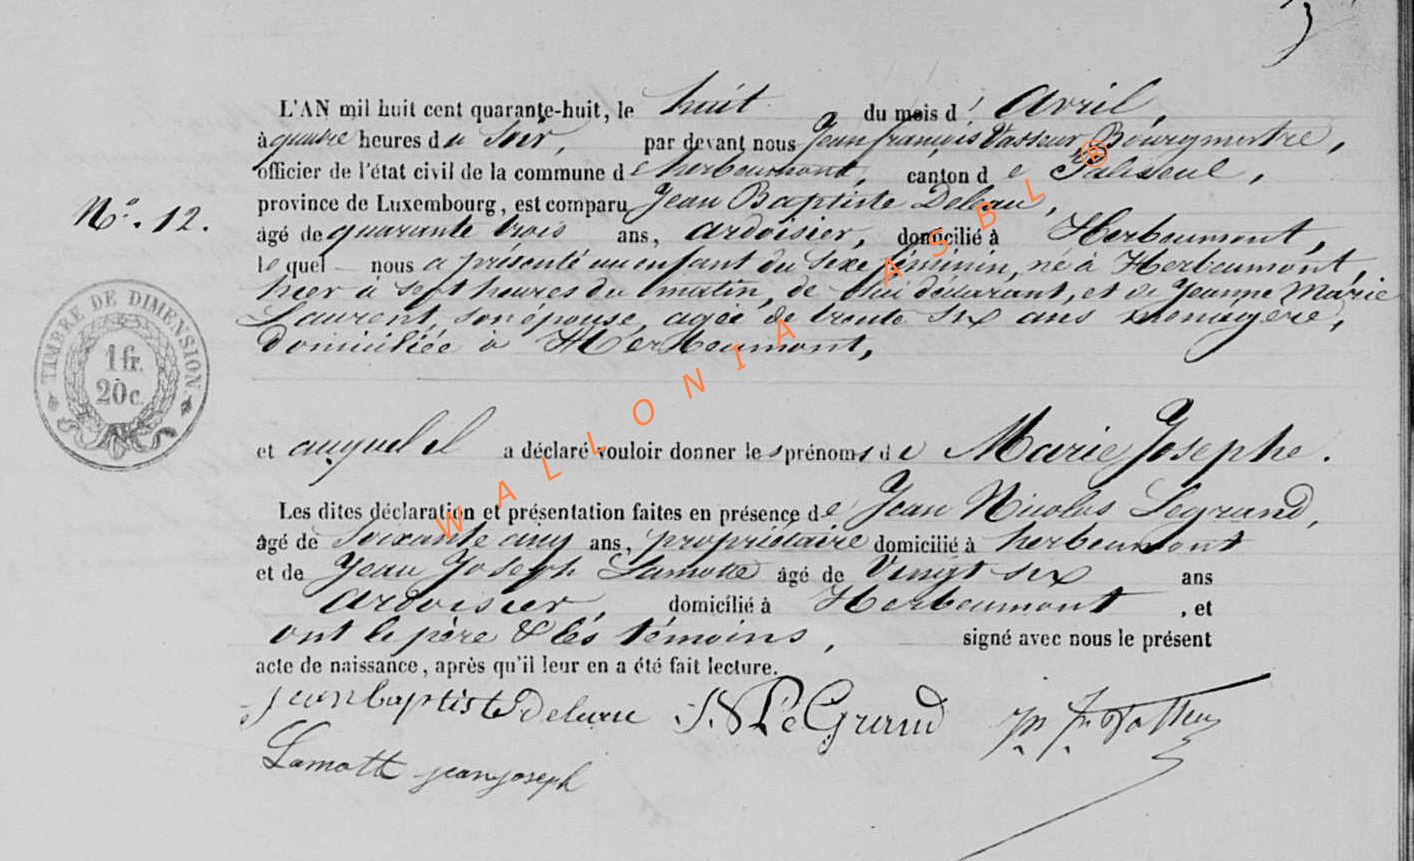 L'AN mil huit cent quarante-huit, le huit du mois d'avril,
à quatre heures du soir, par devant nous Jean françois Vasseur Bourgmestre,
officier de l'état civil de la commune de herbeumont, canton de Paliseul,
province de Luxembourg, est comparu Jean Baptiste Deleau,
N°. 12.
âgé de quarante trois ans, ardoisier, domicilié à Herbeumont,
lequel nous a présenté un enfant du sexe féminin, né à Herbeumont,
hier à sept heures du matin, de lui déclarant, et de Jeanne Marie
Laurent, son épouse, agée de trente six ans menagere,
domiciliée à Herbeumont,
TIMBRE DE DIMENSION.
1 fr.
20c.
et auquel il a déclaré vouloir donner les prénoms de Marie Josephe.
Les dites déclaration et présentation faites en présence de Jean Nicolas Legrand,
âgé de soixante cinq ans, propriétaire domicilié à herbeumont
et de Jean Joseph Lamotte âgé de Vingt six ans
ardoisier, domicilié à Herbeumont, et
ont le père & les témoins, signé avec nous le présent
acte de naissance, après qu'il leur en a été fait lecture.
jean baptiste deleau J. N. Le Grand
Lamott jean joseph
WALLONIA ASBL ®